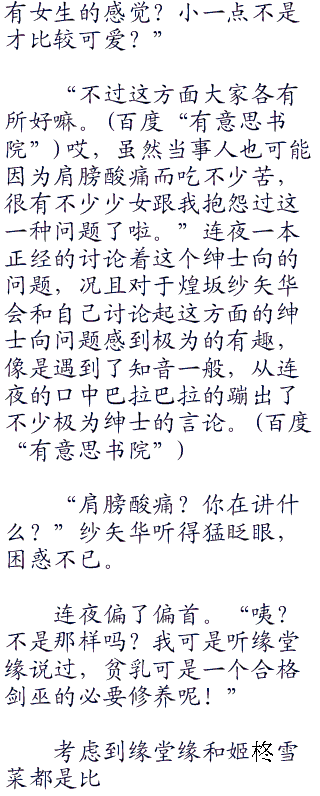 有女生的感觉？小一点不是
才比较可爱？”
“不过这方面大家各有
所好嘛。(百度“有意思书
院”)哎，虽然当事人也可能
因为肩膀酸痛而吃不少苦，
很有不少少女跟我抱怨过这
一种问题了啦。”连夜一本
正经的讨论着这个绅士向的
问题，况且对于煌坂纱矢华
会和自己讨论起这方面的绅
士向问题感到极为的有趣，
像是遇到了知音一般，从连
夜的口中巴拉巴拉的蹦出了
不少极为绅士的言论。(百度
“有意思书院”)
“肩膀酸痛？你在讲什
么？”纱矢华听得猛眨眼，
困惑不已。
连夜偏了偏首。“咦？
不是那样吗？我可是听缘堂
缘说过，贫乳可是一个合格
剑巫的必要修养呢！”
考虑到缘堂缘和姬柊雪
菜都是比